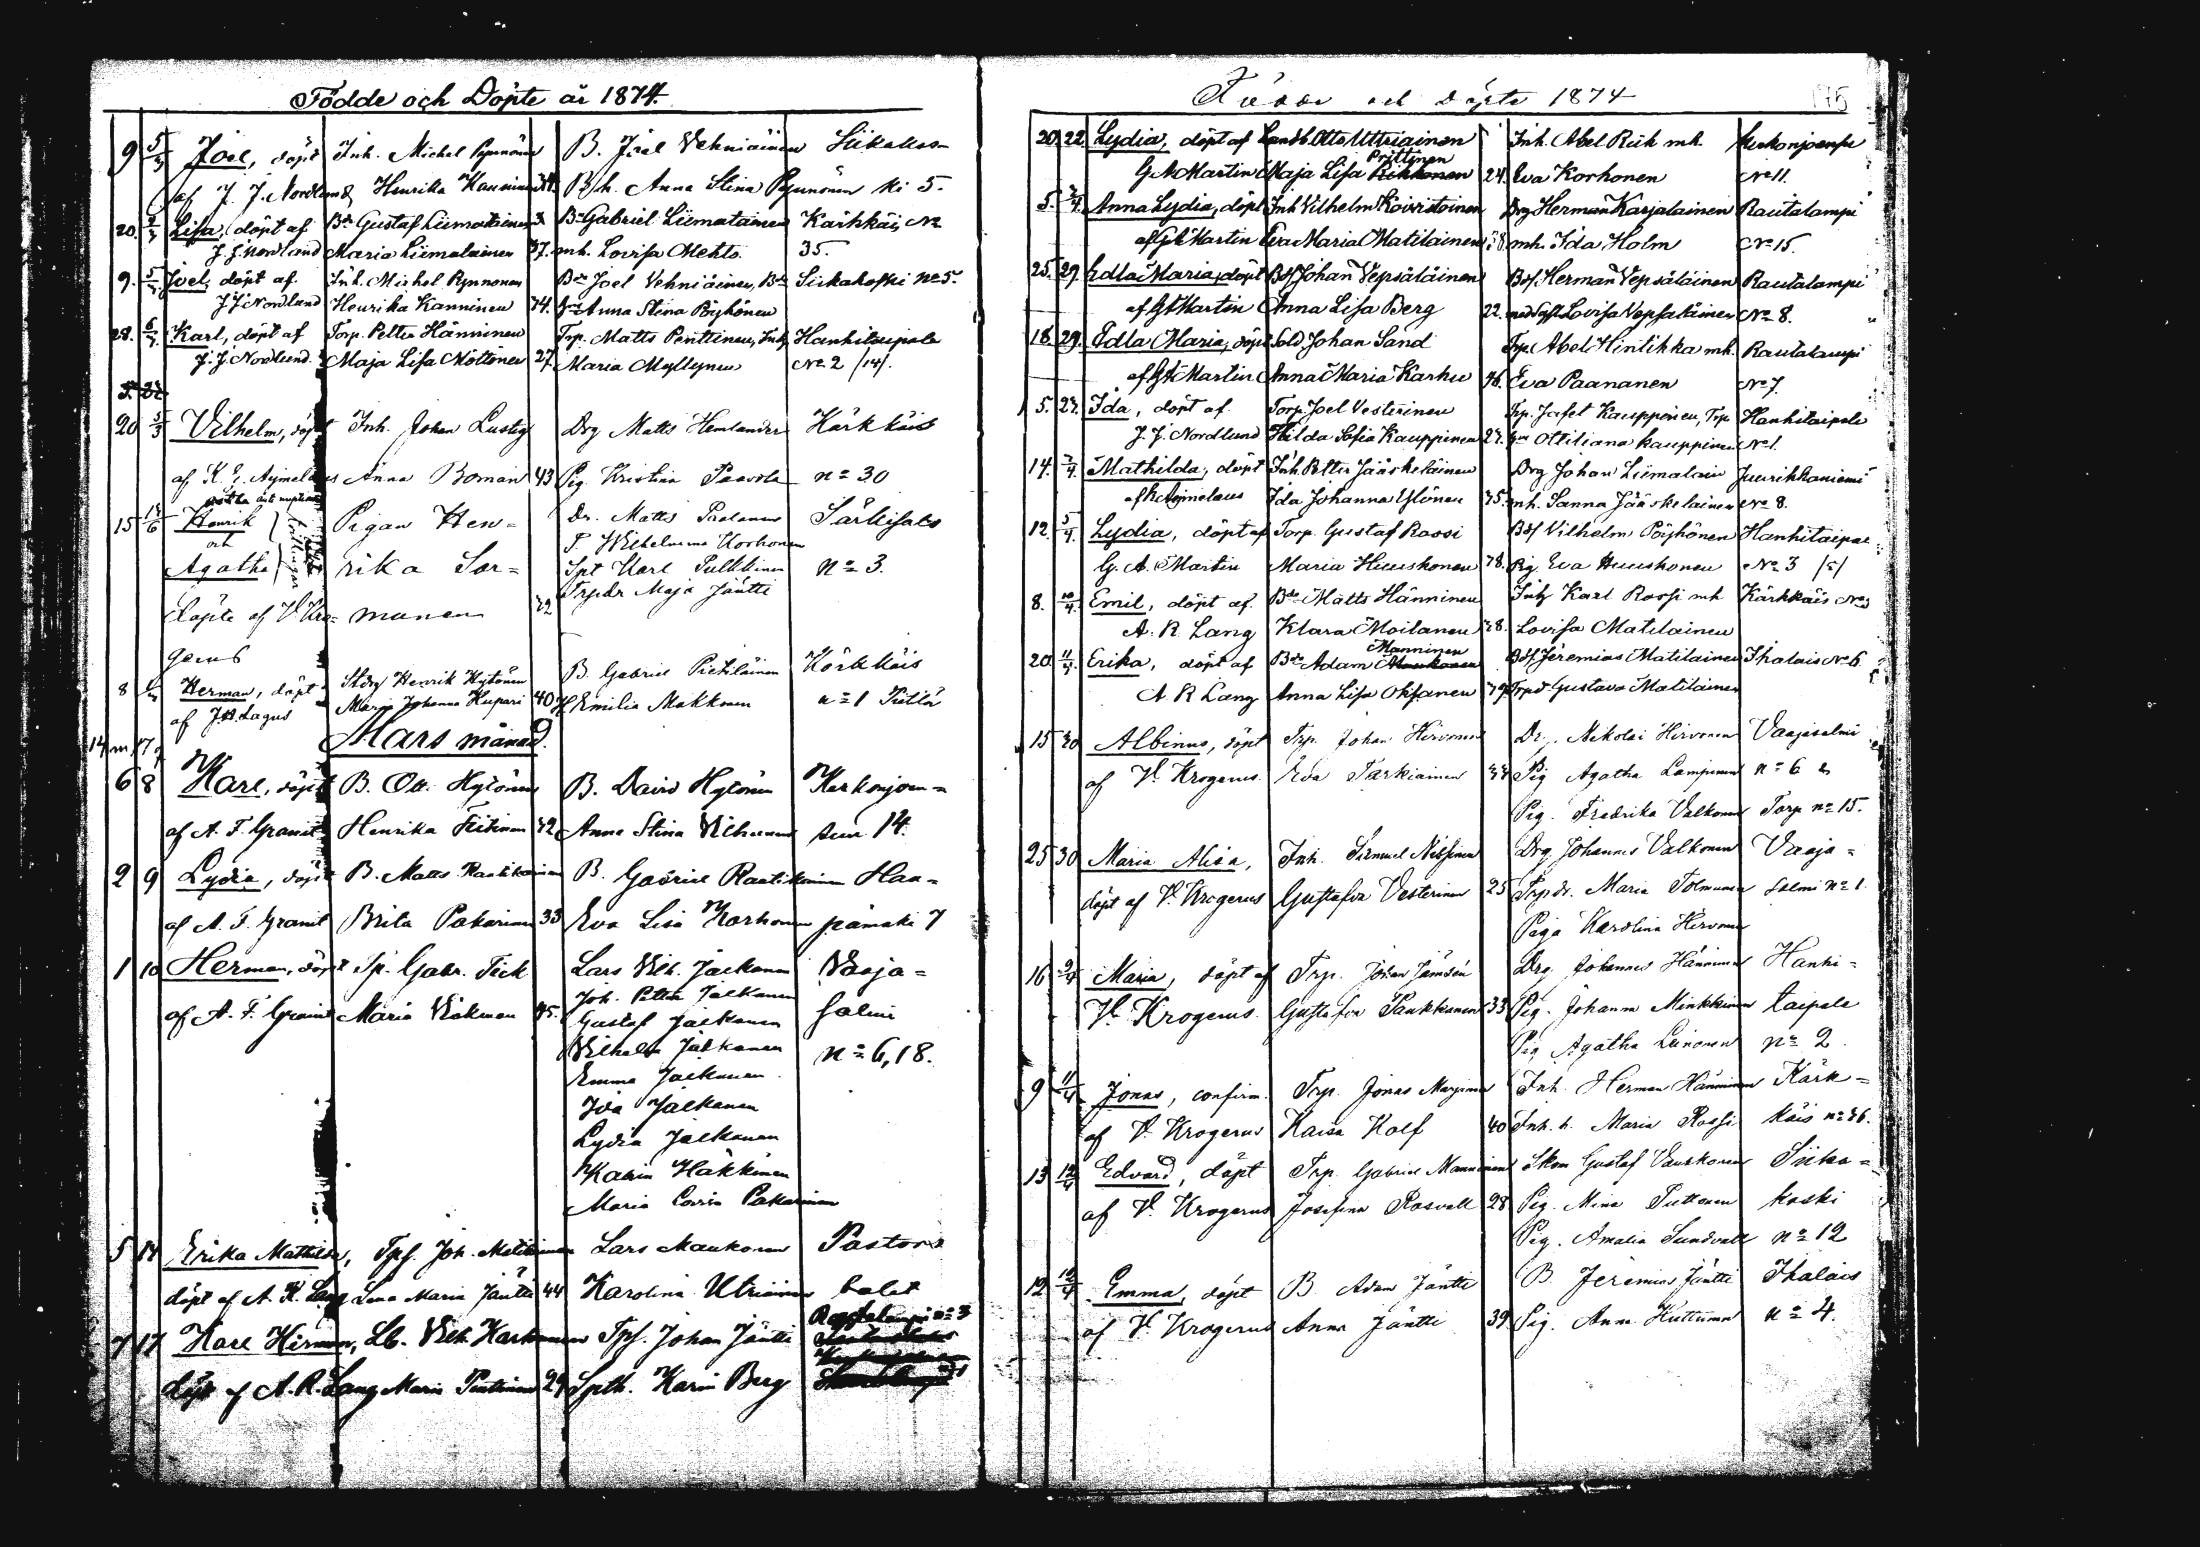 Födde och Döpte år 1874.
9 5/3 Joel, döpt Inh. Michel Pynnönen B. Joel Vehniäinen Siikakos-
af J. J. Nordlund Henrika Kanninen 34. B.h. Anna Stina Pynnönen ki 5.
20. Lisa, döpt af Bde Gustaf Liimatainen Bde Gabriel Liimatainen Kärkkäis No
J. J. Nordlund Maria Liimatainen 37. mh. Lovisa Mehto. 35.
9. 5/3 Joel, döpt af Inh. Michel Pynnönen Bde Joel Vehniäinen, Bde Siikakoski No 5.
J. J. Nordlund Henrika Kanninen 34. Anna Stina Pöyhönen
28. Karl, döpt af Torp. Petter Hänninen Trp. Matts Penttinen, Inh. Hanhitaipale
J. J. Nordlund. Maja Lisa Möttönen 27. Maria Myllynen No 2 /14/.
20 5/3 Vilhelm, döpt Inh. Johan Lustig Drg Matts Hemlander Kärkkäis
af K. E. Aejmelæus Anna Boman 43 Pig. Kristina Paavola n=o 30
15 Henrik Pigan Hen= Dr. Matts Särkisalo
och P. Wilhelmina Korhonen
Agatha rika Sor= Spt Karl Pulkkinen No 3.
Trpdr Maja Jäntti
döpte af V. Kro= munen 32
gerus
8 Herman, döpt Stdrg Henrik Hytönen B. Gabriel Pietiläinen Kärkkäis
af J. H. Lagus Maria Johanna Kupari 40 H Emilia Makkonen No 1 Pietilä
14 m 17 q Mars månad.
6 8 Karl, döpt B. Otto Hytönen B. David Hytönen Kerkonjoen=
af A. F. Granit Henrika Tiitinen 32 Anna Stina suu 14.
2 9 Lydia, döpt B. Matts Rautiainen B. Gabriel Rautiainen Han=
af A. F. Granit Brita Pakarinen 33 Eva Lisa Korhonen pämäki 7
1 10 Herman, döpt Sp. Gabr. Fick Lars Vilh. Jalkanen Vaaja=
Joh. Petter Jalkanen
af A. F. Granit Maria 45. Gustaf Jalkanen salmi
Vilhelm Jalkanen n=o 6,18.
Emma Jalkanen
Ida Jalkanen
Lydia Jalkanen
Karin Häkkinen
Maria Lovisa Pakarinen
5 14 Erika Mathilda, Tpf. Joh. Matilainen Lars Maukonen Pastors
döpt af A. R. Lang Lena Maria Jäntti 44 Karolina Utriainen bolet
Rautalampi n=o 3
7 17 Karl Herman, Lb. Vilh. Karhunen Tpf. Johan Jäntti
döpt af A. R. Lang Maria Penttinen 29 Spth. Karin Berg
Födde och döpte 1874 175
20. 22. Lydia, döpt af Landb. Otto Uttriainen Inh. Abel Riik mh. Kerkonjoensu
Prittinen
G A Martin Maja Lisa Rikkonen 24. Eva Korhonen No 11.
5. Anna Lydia, döpt Inh Vilhelm Koivistoinen Drg Herman Karjalainen Rautalampi
af G A Martin Eva Maria Matilainen 28. mh. Ida Holm No 15.
25. 29. Edla Maria, döpt Bdf Johan Vepsäläinen Bdf. Herman Vepsäläinen Rautalampi
af G A Martin Anna Lisa Berg 22. med Lovisa Vepsäläinen No 8.
18. 29. Edla Maria, döpt Sold. Johan Sand Trp. Abel Hintikka mh. Rautalampi
af G A Martin Anna Maria Karhu 46. Eva Paananen No 7.
5. 27. Ida, döpt af Torp. Joel Vesterinen Trp. Jafet Kauppinen, Trp Hanhitaipale
J. J. Nordlund Hilda Sofia Kauppinen 27. Ottiliana Kauppinen No 1.
14. 3/4. Mathilda, döpt Inh. Petter Jääskeläinen Drg Johan Liimatain Juurikkaniemi
af K Aejmelæus Ida Johanna Ylönen 35. mh. Sanna Jääskeläinen No 8.
12. 5/4. Lydia, döpt af Torp. Gustaf Rossi Bdf Vilhelm Pöyhönen Hanhitaipal
G. A. Martin Maria Huuskonen 38. Pig. Eva Huuskonen No 3 /5/
8. 10/4. Emil, döpt af Bde Matts Hänninen Inh Karl Rossi mh Kärkkäis No
A. R. Lang Klara Moilanen 38. Lovisa Matilainen
Manninen
20. 11/4. Erika, döpt af Bde Adam Maukonen Bdf. Jeremias Matilainen Ihalais No 6
A R Lang Anna Lisa Oksanen 39. Trpd Gustava Matilainen
15 30 Albinus, döpt Trp. Johan Hirvonen Dr. Nikolai Hirvonen Vaajasalmi
af V. Krogerus. Eva Tarkiainen 37 Pig Agatha Lampinen n=o 6
Pig. Fredrika Valkonen Torp n=o 15.
25 30 Maria Alisa, Inh. Samuel Nissinen Drg Johannes Valkonen Vaaja=
döpt af V. Krogerus Gustafva Vesterinen 25 Trpdr. Maria Tolmunen salmi n=o 1.
Piga Karolina Hirvonen
16 9/4 Maria, döpt af Trp. Johan Jämsén Drg Johannes Hänninen Hanhi=
V. Krogerus. Gustafva Paukkonen 33 Pig. Johanna Minkkinen taipale
Pig Agatha Leinonen n=o 2.
9 11/4 Jonas, confirm. Trp. Jonas Inh. Herman Hänninen Kärk=
af V. Krogerus Kaisa Kolf 40 Inh. h. Maria Rossi käis n=o 36.
13 12/4 Edvard, döpt Trp. Gabriel Manninen Skom Gustaf Vauhkonen Siika=
af V. Krogerus Josefina Rosvall 28 Pig. Mina Puttonen koski
Pig. Amalia Sundvall n=o 12
12 12/4 Emma, döpt B. Adam Jäntti B. Jeremias Jäntti Ihalais
af V. Krogerus Anna Jäntti 39. Pig. Anna Huttunen n=o 4.